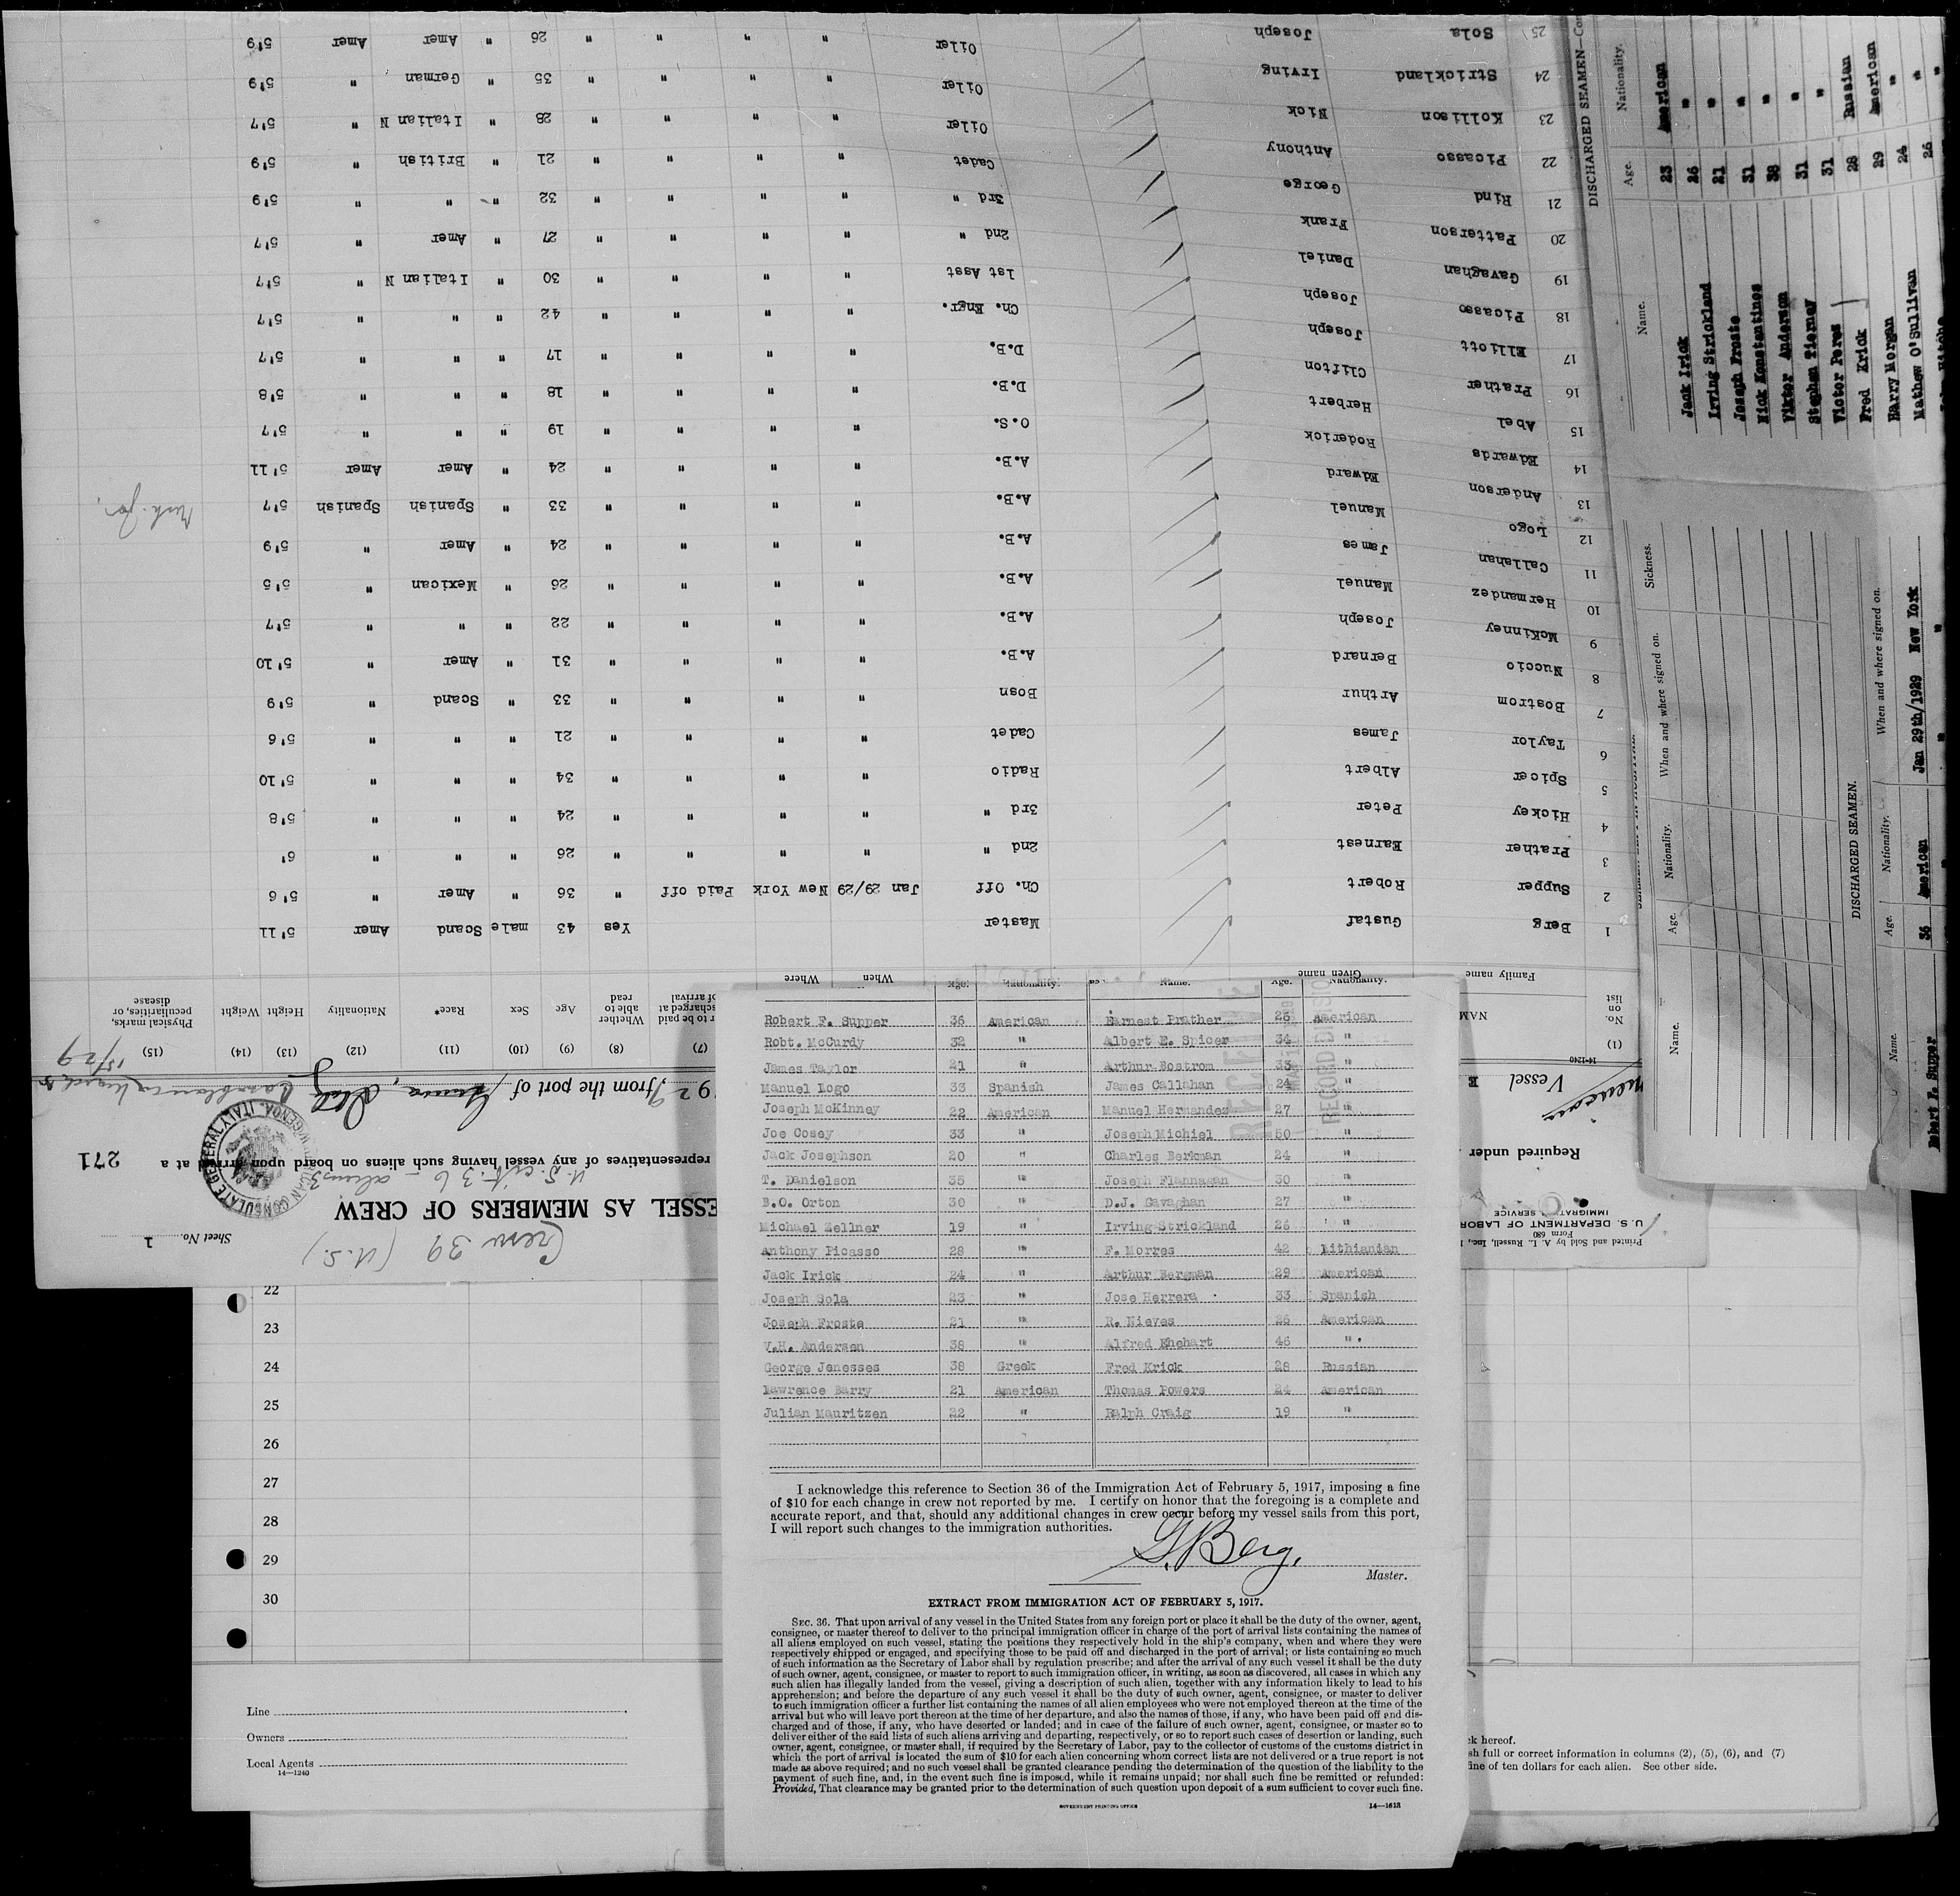 Printed and Sold by A. L. Russell, Inc.,
Form 680
U. S. DEPARTMENT OF LABOR
IMMIGRATION SERVICE
Sheet No. 1
Crew 39 (U.S.)
ESSEL AS MEMBERS OF CREW
Required under
representatives of any vessel having such aliens on board upon arrival at a
271
Vessel
from the port of Genoa, Italy
14-1240
(1) (7) (8) (9) (10) (11) (12) (13) (14) (15)
No. on list
Family name Given name When Where
Whether able to read Age Sex Race* Nationality Height Weight Physical marks, peculiarities, or disease
1 Berg Gustaf Master Yes 43 male Scand Amer 5'11
2 Supper Robert Ch. Off Jan 29/29 New York Paid off " 36 " Amer " 5'6
3 Prather Earnest 2nd " " " " " 26 " " " 6'
4 Hickey Peter 3rd " " " " " 24 " " " 5'8
5 Spicer Albert Radio " " " " 34 " " " 5'10
6 Taylor James Cadet " " " " 21 " " " 5'6
7 Bostrom Arthur Bosn " " " " 33 " Scand " 5'9
8 Nuccio Bernard A.B. " " " " 31 " Amer " 5'10
9 McKinney Joseph A.B. " " " " 22 " " " 5'7
10 Hermandez Manuel A.B. " " " " 26 " Mexican " 5'5
11 Callahan James A.B. " " " " 24 " Amer " 5'9
12 Logo Manuel A.B. " " " " 33 " Spanish Spanish 5'7
13 Anderson Edward A.B. " " " " 24 " Amer Amer 5'11
14 Edwards Roderick O.S. " " " " 19 " " " 5'7
15 Abel Herbert D.B. " " " " 18 " " " 5'8
16 Prather Clifton D.B. " " " " 17 " " " 5'7
17 Elliott Joseph Ch. Engr. " " " " 42 " " " 5'7
18 Picasso Joseph 1st Asst " " " " 30 " Italian N " 5'7
19 Gavaghan Daniel 2nd " " " " " 27 " Amer " 5'7
20 Patterson Frank 3rd " " " " " 32 " " " 5'9
21 Rind George Cadet " " " " 21 " British " 5'9
22 Picasso Anthony Oiler " " " " 28 " Italian N " 5'7
23 Kollison Nick Oiler " " " " 35 " German " 5'9
24 Strickland Irving Oiler " " " " 26 " Amer Amer 5'9
25 Sola Joseph
DISCHARGED SEAMEN—Con
Name. Age. Nationality.
Jack Irick 23 American
Irving Strickland 26 "
Joseph Froste 21 "
Nick Konstantinos 31 "
Viktor Anderson 38 "
Stephen Tierney 31 "
Victor Peres 31 "
Fred Krick 28 Russian
Harry Morgan 29 American
Mathew O'Sullivan 24 "
26 "
Name. Age. Nationality. When and where signed on. Sickness.
DISCHARGED SEAMEN.
Name. Age. Nationality. When and where signed on.
Robert F. Supper 36 American Jan 29th/1929 New York
Age. Nationality. Name. Age. Nationality.
Robert F. Supper 36 American Earnest Prather 26 American
Robt. McCurdy 32 " Albert E. Spicer 34 "
James Taylor 21 " Arthur Bostrom 33 "
Manuel Logo 33 Spanish James Callahan 24 "
Joseph McKinney 22 American Manuel Hernandez 27 "
Joe Cosey 33 " Joseph Michiel 50 "
Jack Josephson 20 " Charles Berkman 24 "
T. Danielson 35 " Joseph Flannagan 30 "
B.O. Orton 30 " D.J. Gavaghan 27 "
Michael Zellner 19 " Irving Strickland 26 "
Anthony Picasso 28 " F. Morres 42 Lithianian
Jack Irick 24 " Arthur Bergman 29 American
Joseph Sola 23 " Jose Herrera 33 Spanish
Joseph Froste 21 " R. Nieves 26 American
V.H. Andersen 38 " Alfred Ehehart 46 "
George Jenesses 38 Greek Fred Krick 28 Russian
Lawrence Barry 21 American Thomas Powers 24 American
Julian Mauritzen 22 " Ralph Craig 19 "
I acknowledge this reference to Section 36 of the Immigration Act of February 5, 1917, imposing a fine
of $10 for each change in crew not reported by me. I certify on honor that the foregoing is a complete and
accurate report, and that, should any additional changes in crew occur before my vessel sails from this port,
I will report such changes to the immigration authorities.
G. Berg.
Master.
EXTRACT FROM IMMIGRATION ACT OF FEBRUARY 5, 1917.
SEC. 36. That upon arrival of any vessel in the United States from any foreign port or place it shall be the duty of the owner, agent,
consignee, or master thereof to deliver to the principal immigration officer in charge of the port of arrival lists containing the names of
all aliens employed on such vessel, stating the positions they respectively hold in the ship's company, when and where they were
respectively shipped or engaged, and specifying those to be paid off and discharged in the port of arrival; or lists containing so much
of such information as the Secretary of Labor shall by regulation prescribe; and after the arrival of any such vessel it shall be the duty
of such owner, agent, consignee, or master to report to such immigration officer, in writing, as soon as discovered, all cases in which any
such alien has illegally landed from the vessel, giving a description of such alien, together with any information likely to lead to his
apprehension; and before the departure of any such vessel it shall be the duty of such owner, agent, consignee, or master to deliver
to such immigration officer a further list containing the names of all alien employees who were not employed thereon at the time of the
arrival but who will leave port thereon at the time of her departure, and also the names of those, if any, who have been paid off and dis-
charged and of those, if any, who have deserted or landed; and in case of the failure of such owner, agent, consignee, or master so to
deliver either of the said lists of such aliens arriving and departing, respectively, or so to report such cases of desertion or landing, such
owner, agent, consignee, or master shall, if required by the Secretary of Labor, pay to the collector of customs of the customs district in
which the port of arrival is located the sum of $10 for each alien concerning whom correct lists are not delivered or a true report is not
made as above required; and no such vessel shall be granted clearance pending the determination of the question of the liability to the
payment of such fine, and, in the event such fine is imposed, while it remains unpaid; nor shall such fine be remitted or refunded:
Provided, That clearance may be granted prior to the determination of such question upon deposit of a sum sufficient to cover such fine.
GOVERNMENT PRINTING OFFICE
14—1613
22
23
24
25
26
27
28
29
30
Line
Owners
Local Agents
14—1240
ck hereof.
sh full or correct information in columns (2), (5), (6), and (7)
fine of ten dollars for each alien. See other side.